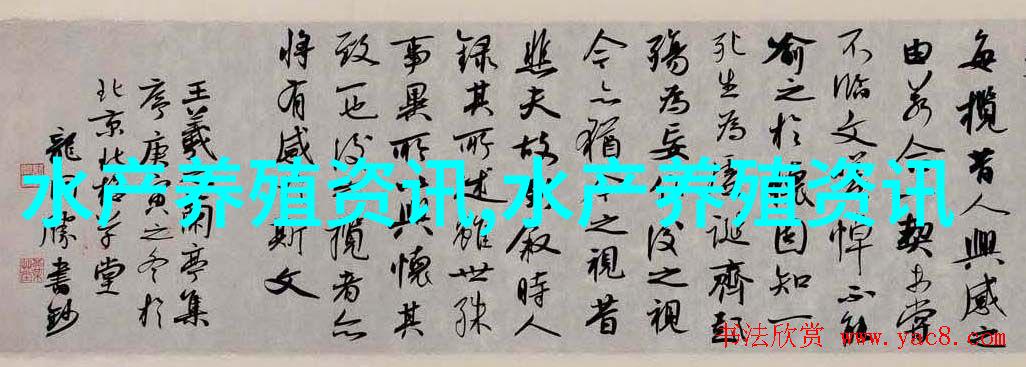 每攬昔人興感之
由若合一契未嘗
不臨文嗟悼不能
喻之於懷固知一
死生為虛誕齊彭
殤為妄作後之視
今亦猶今之視昔
悲夫故列敘時人
錄其所述雖世殊
事異所以興懷其
致一也後之攬者亦
將有感於斯文
王羲之蘭亭集
序庚寅之冬於
北京北草堂
龍勝書鈔
水产养殖资讯,水产养殖资讯
书法欣赏 www.yac8.com